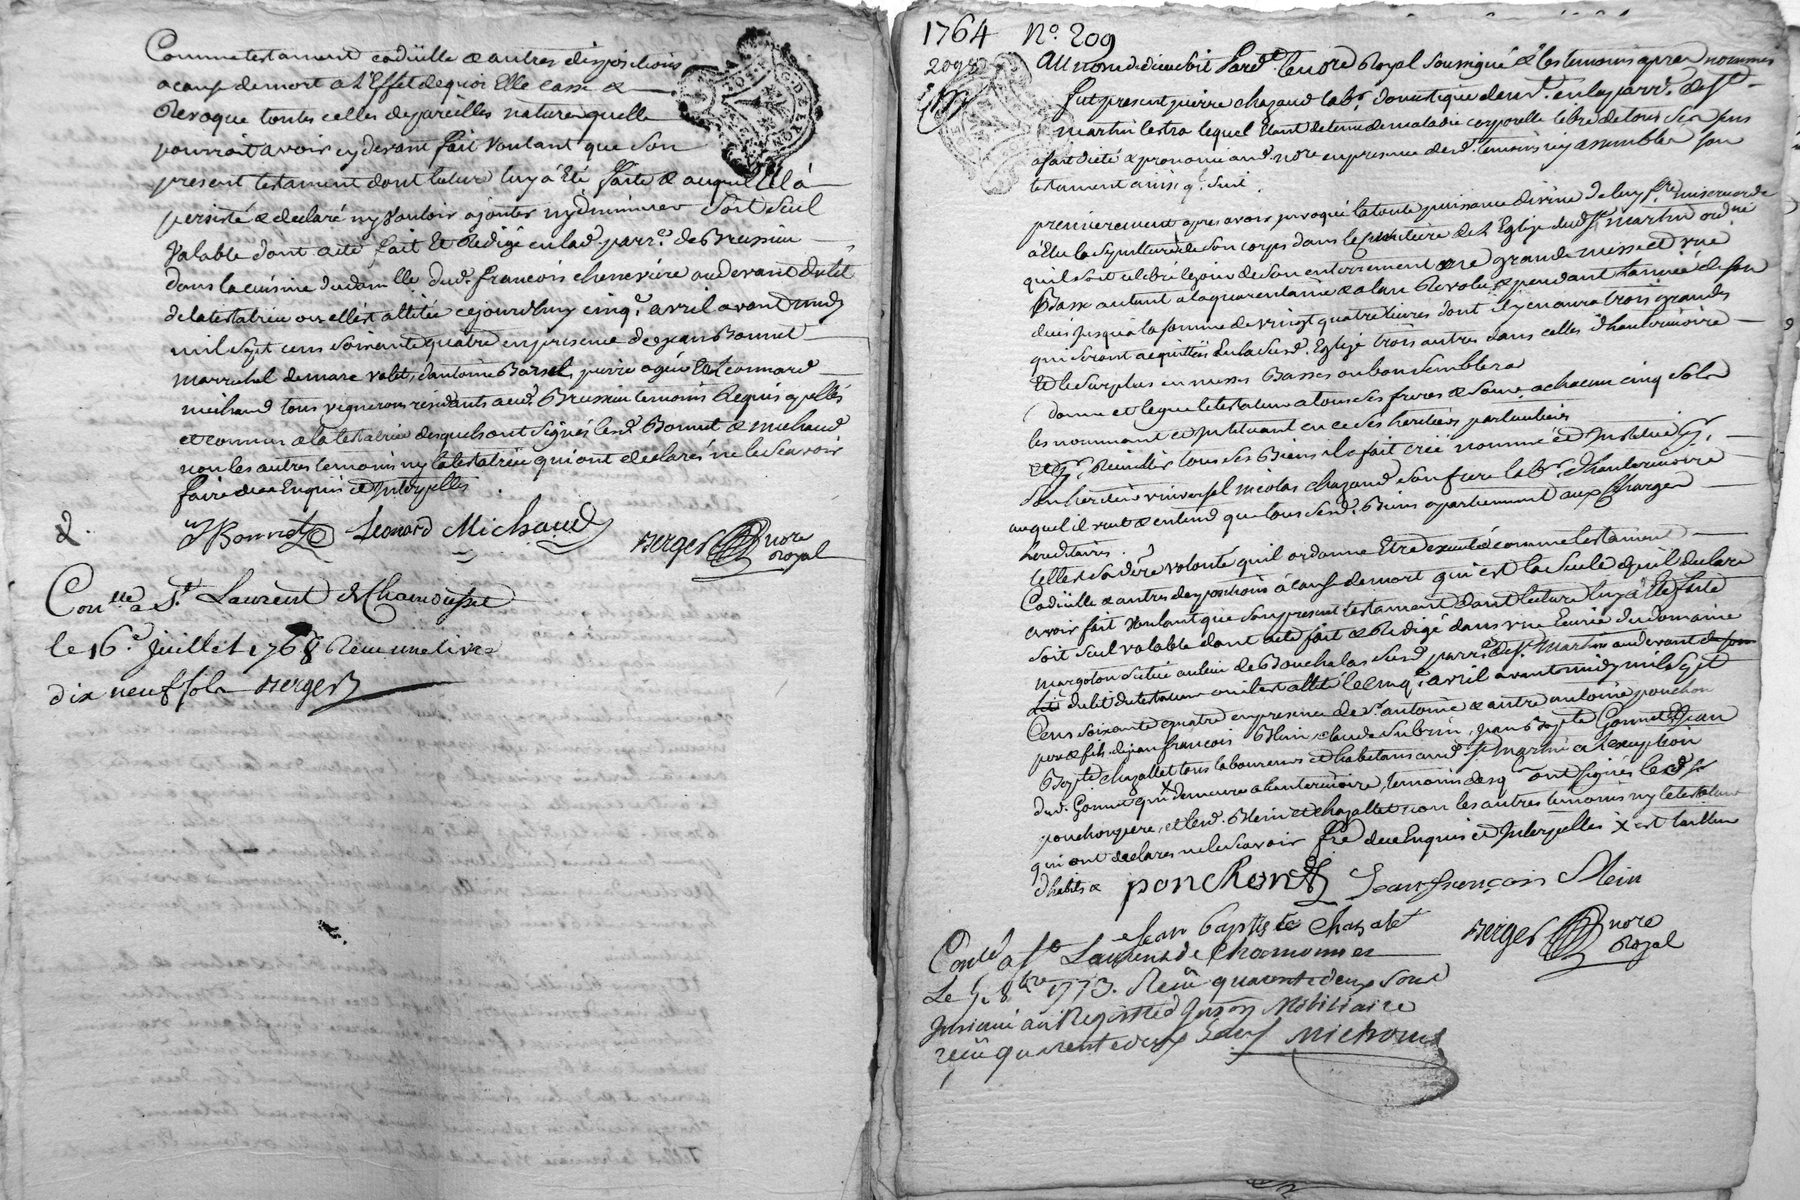 Comme testament codicille & autres dispositions
a cause de mort a L'Effet de quoi Elle casse &
Revoque toutes celles de pareilles nature quelle
pourroit avoir cy devant fait Voulant que Son
present testament dont lecture luy a Eté faite & auquel Elle a
persisté & declaré ny Vouloir ajouter ny diminuer Soit Seul
Valable dont acte fait Et Redigé en lad. parr.e de Brussieu
dans la cuisine du domille dud. françois cheneviere au devant du lit
de la testatrice ou elle est allitée cejourdhuy cinq.e avril avant midy
mil Sept cens Soixante quatre en presence de jean Bonnet
marechal demare valet, d'antoine Barsel, pierre agén Et Leonnard
michaud tous vignerons residants aud. Brussieu temoins Requis apellés
et connus a la testatrice desquels ont Signés lesd. Bonnet & michaud
non les autres temoins ny la testatrice qui ont declarés ne le Scavoir
faire de ce Enquis et Interpellés
JBonnet Leonard Michaud Berger nore Royal
Con.lle a S.t Laurent de Chamousset
le 16.e Juillet 1768 Recu une livre
dix neuf sols Berger
1764 N.o 209
209.e
Au nom de dieu Soit Pard.t le no.re Royal Soussigné & les temoins apres nommés
fut present pierre chazaud lab.r domestique demt. en la parr.e de S.t
martin lestra lequel Etant detenu de maladie corporelle libre de tous Ses Sens
a fait dicté & prononcé aud. no.re en presence desd. temoins icy assemblés Son
testament ainsi q.l Suit.
premierement apres avoir invoqué la toute puissance divine de luy f.re misericorde
a Elu la Sepulture de Son corps dans le cimetiere de l'Eglise dud. S.t martin ord.né
qu'il Soit celebré le jour de Son enterrement une grande messe et une
Basse autant a la quarantaine & a l'an Revolu & pendant l'année de Son
deces jusqu'à la somme de vingt quatre livres dont il y en aura trois grandes
qui Seront acquittées En la Susd. Eglise trois autres dans celles d'hauterivoire
Et le Surplus en messes Basses ou bon Semblera
donne et legue le testateur a tous Ses freres & Soeurs a chacun cinq Sols
les nommant et Instituant en ce Ses heritiers particuliers
Recueillir tous Ses Biens il a fait créé nommé et Institué p.r
Son heritier universel nicolas chazaud Son frere lab.r d'hauterivoire
auquel il veut & entend que tous Sesd. Biens apartiennent aux Charges
hereditaires.
telle est Sa dere volonté qu'il ordonne Etre executé comme testament
Codicille & autres dispositions a cause de mort qui est la Seule qu'il declare
avoir fait Voulant que Son present testament dont lecture luy a Eté faite
Soit Seul valable dont acte fait & Redigé dans une Ecurie du domaine
margoton Situé au lieu de Bouchalas Susd. parr.e de S.t martin au devant de son
lit du lit du testateur ou il est allité le cinq.e avril avant midy mil Sept
Cens Soixante quatre en presence de S.r antoine & autre antoine ponchon
pere & fils, de jean françois Blein, claude Subrin, jean Bap.te Gonnet & Jean
Bap.te chazallet tous laboureurs et habitans aud. S.t martin a L'exception
dud. Gonnet qui demeure a hauterivoire, temoins desq. ont Signés led. S.r
ponchon pere, et lesd. Blein et chazallet, non les autres temoins ny le testateur
qui ont declarés ne le Scavoir f.re de ce Enquis et Interpellés X est tailleur
d'habits &
ponchon Jean françois Blein
Jean baptiste Chazalet Berger nore Royal
Con.lé a S.t Laurent de Chamousset
Le 8.bre 1773. Recu quarente deux Sous
Insinué au Registre Mobiliaire
recu quarente deux Sous Michoud